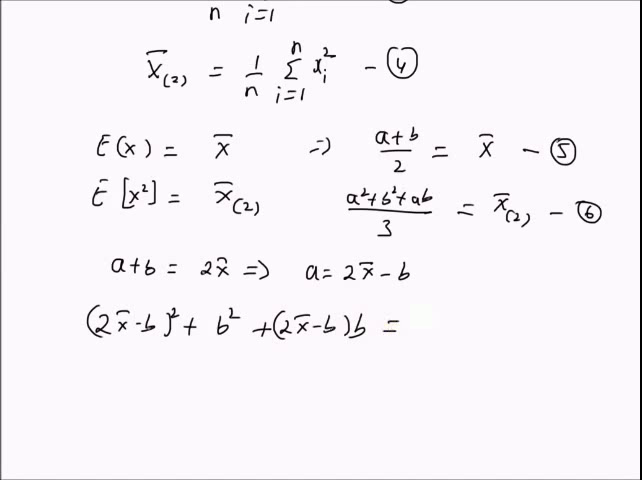 n i=1
x̄₍₂₎ = 1/n Σ_{i=1}^{n} xᵢ² – ④
E(x) = x̄ ⇒ (a+b)/2 = x̄ – ⑤
E[x²] = x̄₍₂₎ (a²+b²+ab)/3 = x̄₍₂₎ – ⑥
a+b = 2x̄ ⇒ a = 2x̄ – b
(2x̄-b)² + b² + (2x̄-b)b =